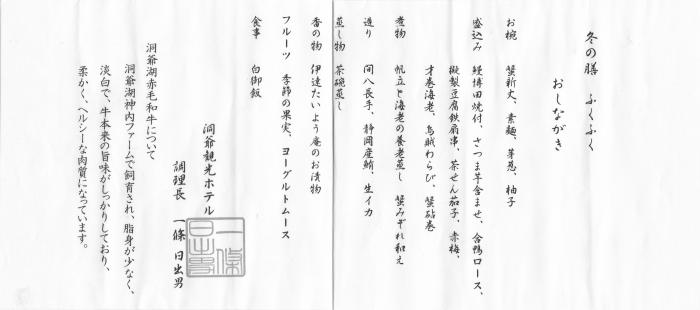 冬の膳 ふくふく
おしながき
お椀 蟹新丈、素麺、芽葱、柚子
盛込み 鰻博田焼付、さつま芋含ませ、合鴨ロース、
擬製豆腐鉄扇串、茶せん茄子、赤梅、
才巻海老、烏賊わらび、蟹砧巻
煮物 帆立と海老の養老蒸し 蟹みぞれ和え
造り 間八長手、静岡産鮪、生イカ
蒸し物 茶碗蒸し
香の物 伊達たいよう庵のお漬物
フルーツ 季節の果実、ヨーグルトムース
食事 白御飯
洞爺観光ホテル
調理長 一條 日出男
洞爺湖赤毛和牛について
洞爺湖神内ファームで飼育され、脂身が少なく、
淡白で、牛本来の旨味がしっかりしており、
柔かく、ヘルシーな肉質になっています。